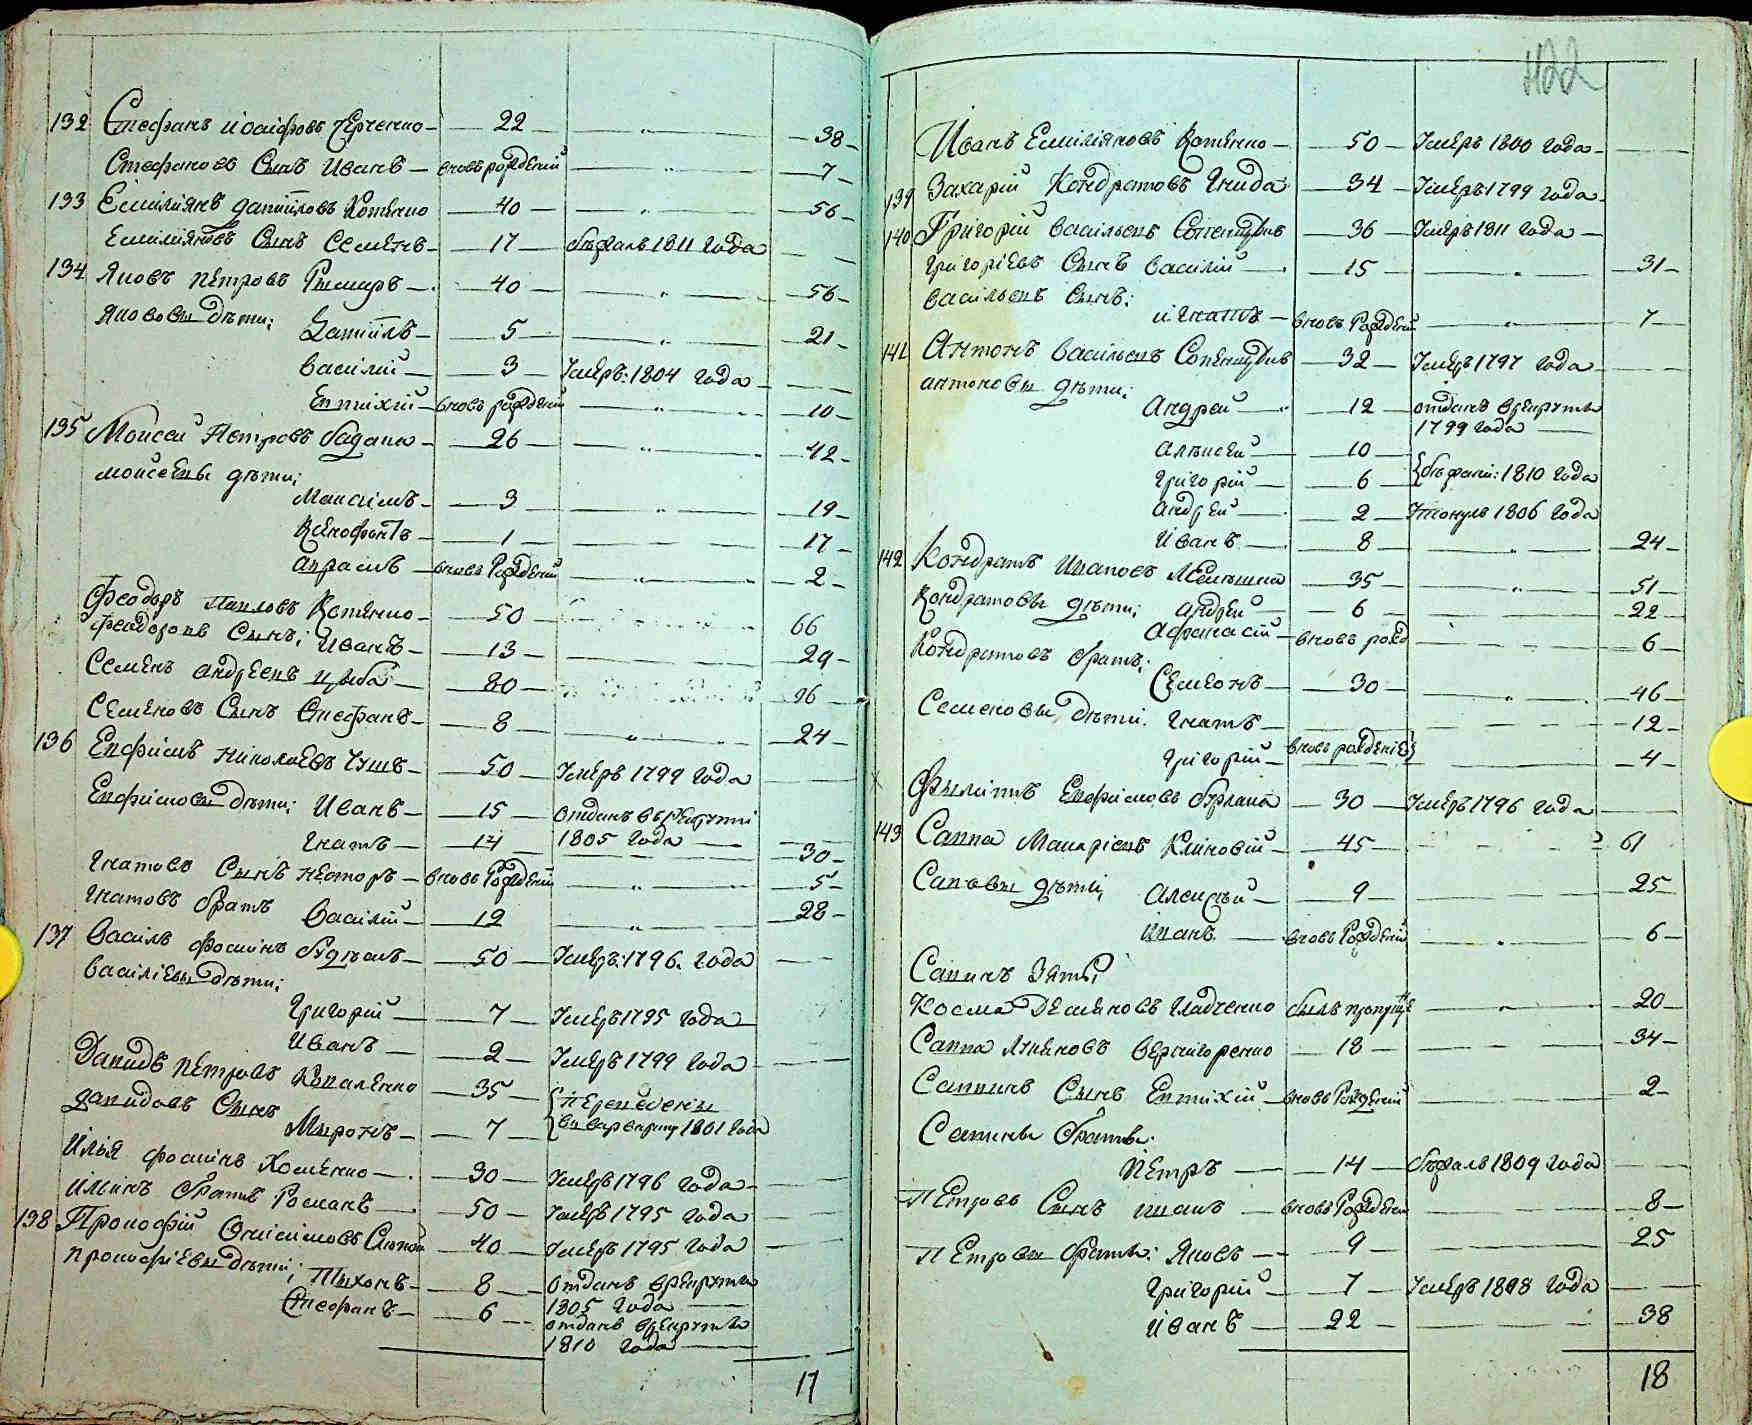 132 Стефанъ Иосифовъ Черченко 22 " 38
Стефановъ Сынъ Иванъ вновь рожденій " 7
133 Емилиянъ Данііловъ Котенко 40 " 56
Емилияновъ Сынъ Семенъ 17 бѣжалъ 1811 года
134 Яковъ Петровъ Рымаръ 40 " 56
Яковвы дѣти: Даніилъ 5 " 21
Василій 3 Умеръ: 1804 года
Евтихій вновь рожденій " 10
135 Моисей Петровъ 26 " 42
Моисеевы дѣти:
Максимъ 3 " 19
Ксенофонтъ 1 17
вновь Рожденій " 2
Феодоръ Павловъ Котенко 50 66
Феодоровъ Сынъ: Иванъ 13 29
Семенъ Андреевъ Цыба 80 96
Семеновъ Сынъ Стефанъ 8 " 24
136 Евфимъ Николаевъ 50 Умеръ 1799 года
Евфимовы дѣти: Иванъ 15 отданъ в рекруты
Игнатъ 14 1805 года 30
Игнатовъ Сынъ Несторъ вновь Рожденій " 5
Игнатовъ братъ Василій 12 " 28
137 Василь Фоминъ 50 Умеръ: 1796. года
Василіевы дѣти:
Григорій 7 Умеръ 1795 года
Иванъ 2 Умеръ 1799 года
Давидъ Петровъ Коваленко 35 переведены
Давидовъ Сынъ
Миронъ 7 в Варваровку 1801 года
Илья Фоминъ Хоменко 30 Умеръ 1796 года
Ильинъ братъ Романъ 50 Умеръ 1795 года
138 Прокофій Онисимовъ Слепой 40 Умеръ 1795 года
Прокофіевы дѣти: Тихонъ 8 отданъ в рекруты
1805 года
Стефанъ 6 отданъ в рекруты
1810 года
17
422
Иванъ Емилияновъ Котенко 50 Умеръ 1800 года
139 Захарій Кондратовъ Гнида 34 Умеръ 1799 года
140 Григорій Васильевъ 36 Умеръ 1811 года
Григоріевъ Сынъ Василій 15 " 31
Васильевъ Сынъ:
Игнатъ вновь Рожденій " 7
141 Антонъ Васильевъ 32 Умеръ 1797 года
Антоновы дѣти:
Андрей 12 отданъ в рекруты
1799 года
Алексей 10
Григорій 6 бѣжали: 1810 года
Андрей 2 Утонулъ 1806 года
Иванъ 8 " 24
142 Кондратъ Мелешка 35 " 51
Кондратовы дѣти: Андрей 6 22
Афанасій вновь рожд 6
Кондратовъ братъ:
Семенъ 30 " 46
Семеновы дѣти: Игнатъ 12
Григорій вновь рожденіе 4
Филипъ Евфимовъ Бурлака 30 Умеръ 1796 года
143 Савва Макаріевъ Климовій 45 61
Савовы дѣти: Алексѣй 9 25
Иванъ вновь Рожденій " 6
Савинъ Зять:
Косма Демяновъ Гладченко былъ пропущ " 20
Савва Вернигоренко 18 34
Саввинъ Сынъ Евтихій вновь Рожденій 2
Савины братья:
Петръ 14 бѣжалъ 1809 года
Петровъ Сынъ Иванъ вновь Рожденій 8
Петровы братья: Яковъ 9 25
Григорій 7 Умеръ 1808 года
Иванъ 22 38
18